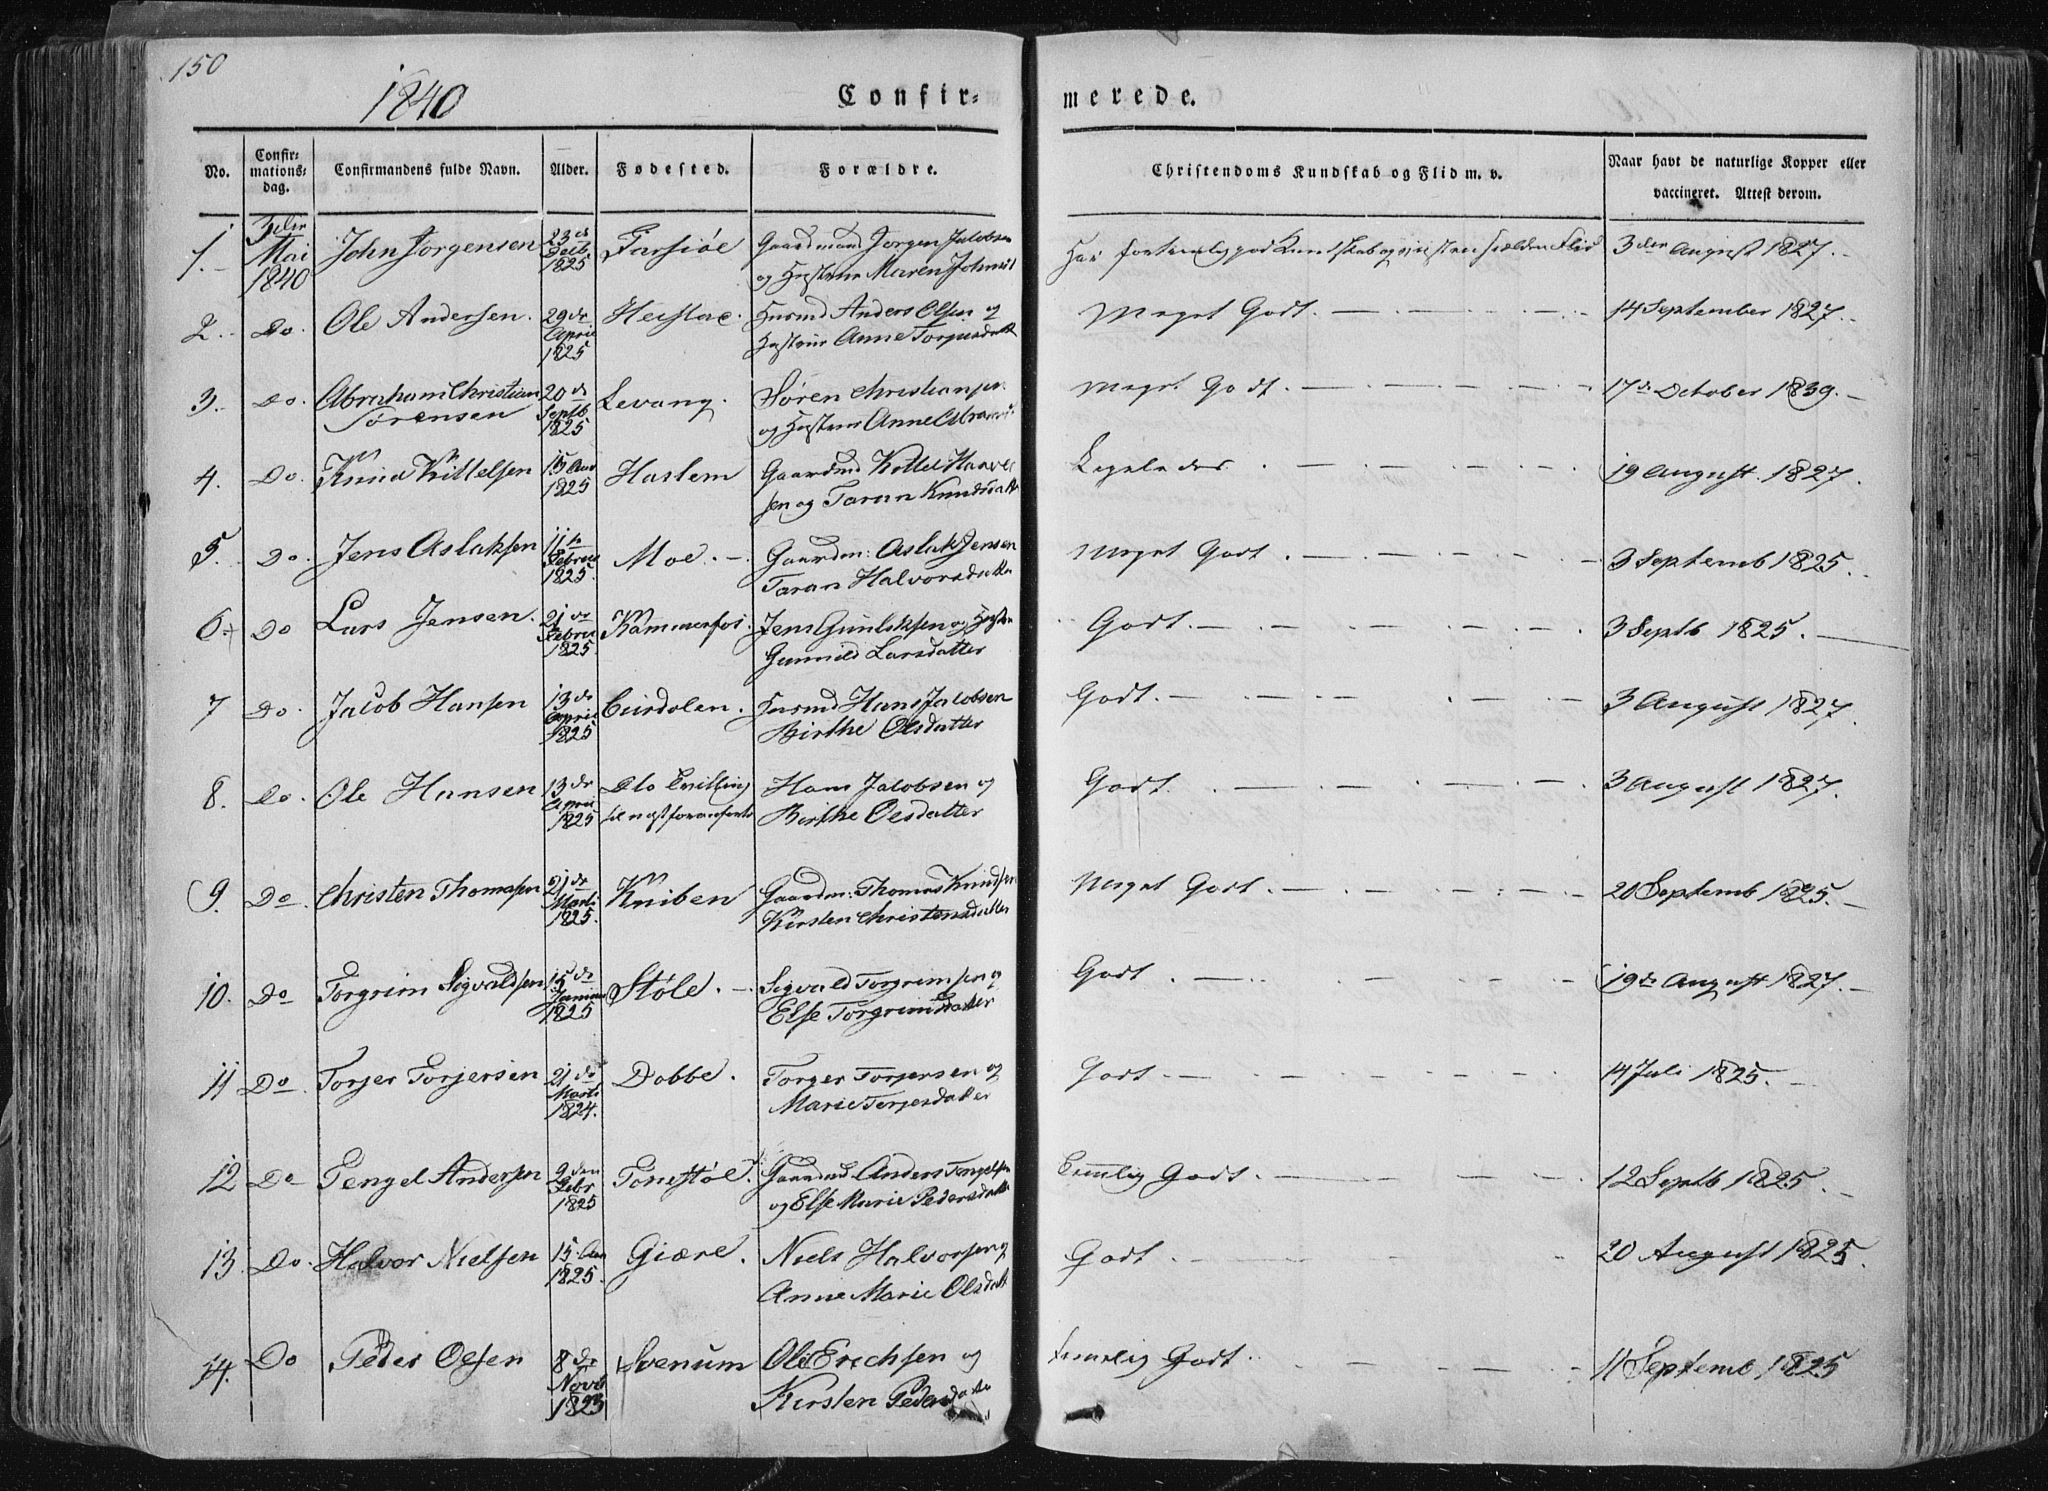 150
1840
Confir= merede.
No. Confir=mations=dag. Confirmandens fulde Navn. Alder. Fødested. Forældre. Christendoms Kundskab og Flid m. v. Naar havt de naturlige Kopper eller vaccineret. Attest derom.
1. 3die Mai 1840 John Jörgensen 23 d 1825 Gaardmand Jorgen Jacobsen Har god Kundskab og Flid 3den August 1827.
og Hustrue Maren
2. Do Ole Andersen. 29 de April 1825 Husmd Anders Olsen og Meget Godt. 14 September 1827.
Hustrue Anne
3. Do. Abraham Christian 20 de Septb 1825 Levang. Sören Christiansen Meget Godt. 17 de October 1839.
Sörensen og Hustrue Anne
4. Do. Knud Kittelsen 15 1825 Haslem Gaardmd Kittel 19 August. 1827.
sen og Taran Knudsdatt
5. Do. Jens Aslaksen 11 te Februar 1825. Moe. Gaardm: Aslak Jensen Meget Godt. 3 Septemb 1825.
Taran Halvorsdatter
6. Do Lars Jensen. 21 de Febru 1825. Kammerfos. Jens Gunlaksen og Hustru Godt. 3 Septb 1825.
Gunnild Larsdatter
7 Do. Jacob Hansen 13 de April 1825 Husmd Hans Jacobsen Godt. 3 August 1827.
Birthe Olsdatter
8. Do. Ole Hansen 13 de April 1825 Do Tvilling Hans Jacobsen og Godt. 3 August 1827.
til næstforanførte Birthe Olsdatter
9. Do Christen Thomasen 21 de Marts 1825. Kniben Gaardm: Thomas Knudsen Meget Godt. 20 Septemb 1825.
Kirsten Christensdatter
10. Do Torgrim Sigvaldsen 15 de Januar 1825 Støle. Sigvald Torgrimsen og Godt. 19 de August 1827.
Else Torgrimsdatter
11 Do. Torjer Torjersen 21 de Marts 1824. Dobbe. Torger Torjersen og Godt. 14 Juli 1825.
Marie Torjersdatter
12 Do Tengel Andersen 9 den Febr 1825 Tonstøl. Gaardmd Anders Tengelsen Temlig Godt. 12 Septb 1825.
og Else Marie Pedersdatter
13 Do. Halvor Nielsen 15 1825. Giære. Niels Halvorsen og Godt. 20 August 1825.
Anne Marie Olsdatt
14. Do Peder Olsen 8 de Novb 1823 Svenum Ole Erichsen og Temelig Godt. 11 Septemb 1825
Kirsten Pedersdatter